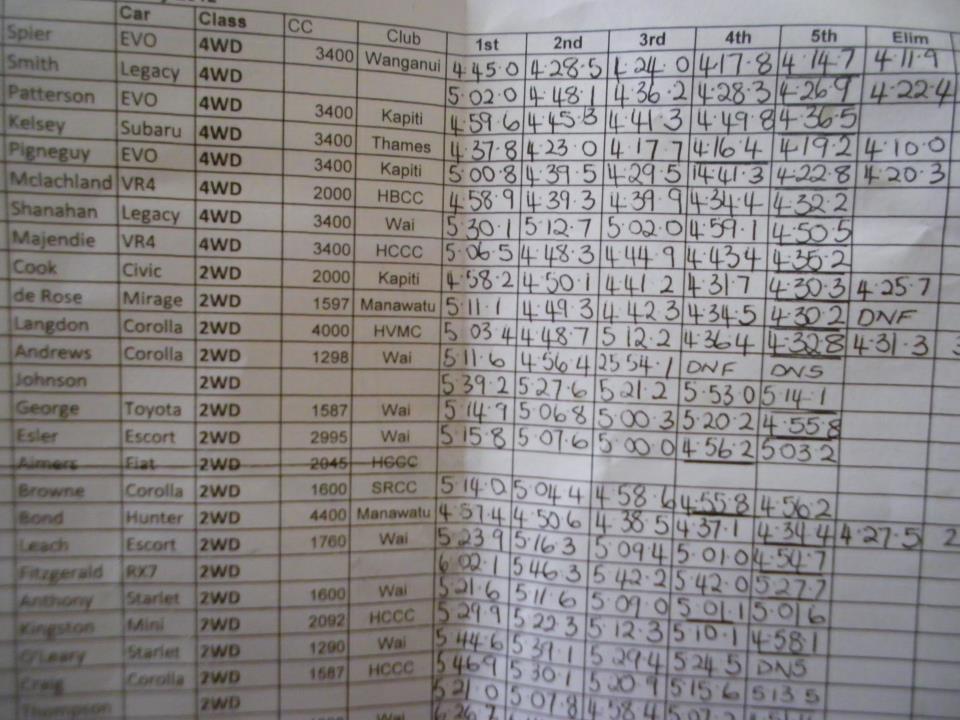 Car Class CC Club 1st 2nd 3rd 4th 5th Elim
Spier EVO 4WD 3400 Wanganui 4·45·0 4·28·5 4·24·0 4·17·8 4·14·7 4·11·9
Smith Legacy 4WD 5·02·0 4·48·1 4·36·2 4·28·3 4·26·9 4·22·4
Patterson EVO 4WD 3400 Kapiti 4·59·6 4·45·3 4·41·3 4·49·8 4·36·5
Kelsey Subaru 4WD 3400 Thames 4·37·8 4·23·0 4·17·7 4·16·4 4·19·2 4·10·0
Pigneguy EVO 4WD 3400 Kapiti 5·00·8 4·39·5 4·29·5 4·41·3 4·22·8 4·20·3
Mclachland VR4 4WD 2000 HBCC 4·58·9 4·39·3 4·39·9 4·34·4 4·32·2
Shanahan Legacy 4WD 3400 Wai 5·30·1 5·12·7 5·02·0 4·59·1 4·50·5
Majendie VR4 4WD 3400 HCCC 5·06·5 4·48·3 4·44·9 4·43·4 4·35·2
Cook Civic 2WD 2000 Kapiti 4·58·2 4·50·1 4·41·2 4·31·7 4·30·3 4·25·7
de Rose Mirage 2WD 1597 Manawatu 5·11·1 4·49·3 4·42·3 4·34·5 4·30·2 DNF
Langdon Corolla 2WD 4000 HVMC 5·03·4 4·48·7 5·12·2 4·36·4 4·32·8 4·31·3
Andrews Corolla 2WD 1298 Wai 5·11·6 4·56·4 25·54·1 DNF DNS
Johnson 2WD 5·39·2 5·27·6 5·21·2 5·53·0 5·14·1
George Toyota 2WD 1587 Wai 5·14·9 5·06·8 5·00·3 5·20·2 4·55·8
Esler Escort 2WD 2995 Wai 5·15·8 5·07·6 5·00·0 4·56·2 5·03·2
Aimers Fiat 2WD 2045 HCCC
Browne Corolla 2WD 1600 SRCC 5·14·0 5·04·4 4·58·6 4·55·8 4·56·2
Bond Hunter 2WD 4400 Manawatu 4·57·4 4·50·6 4·38·5 4·37·1 4·34·4 4·27·5 2
Leach Escort 2WD 1760 Wai 5·23·9 5·16·3 5·09·4 5·01·0 4·54·7
Fitzgerald RX7 2WD 6·02·1 5·46·3 5·42·2 5·42·0 5·27·7
Anthony Starlet 2WD 1600 Wai 5·21·6 5·11·6 5·09·0 5·01·1 5·01·6
Kingston Mini 2WD 2092 HCCC 5·29·9 5·22·3 5·12·3 5·10·1 4·58·1
O'Leary Starlet 2WD 1290 Wai 5·44·6 5·39·1 5·29·4 5·24·5 DNS
Craig Corolla 2WD 1587 HCCC 5·46·9 5·30·1 5·20·9 5·15·6 5·13·5
Thompson 2WD 5·21·0 5·07·8 4·58·4